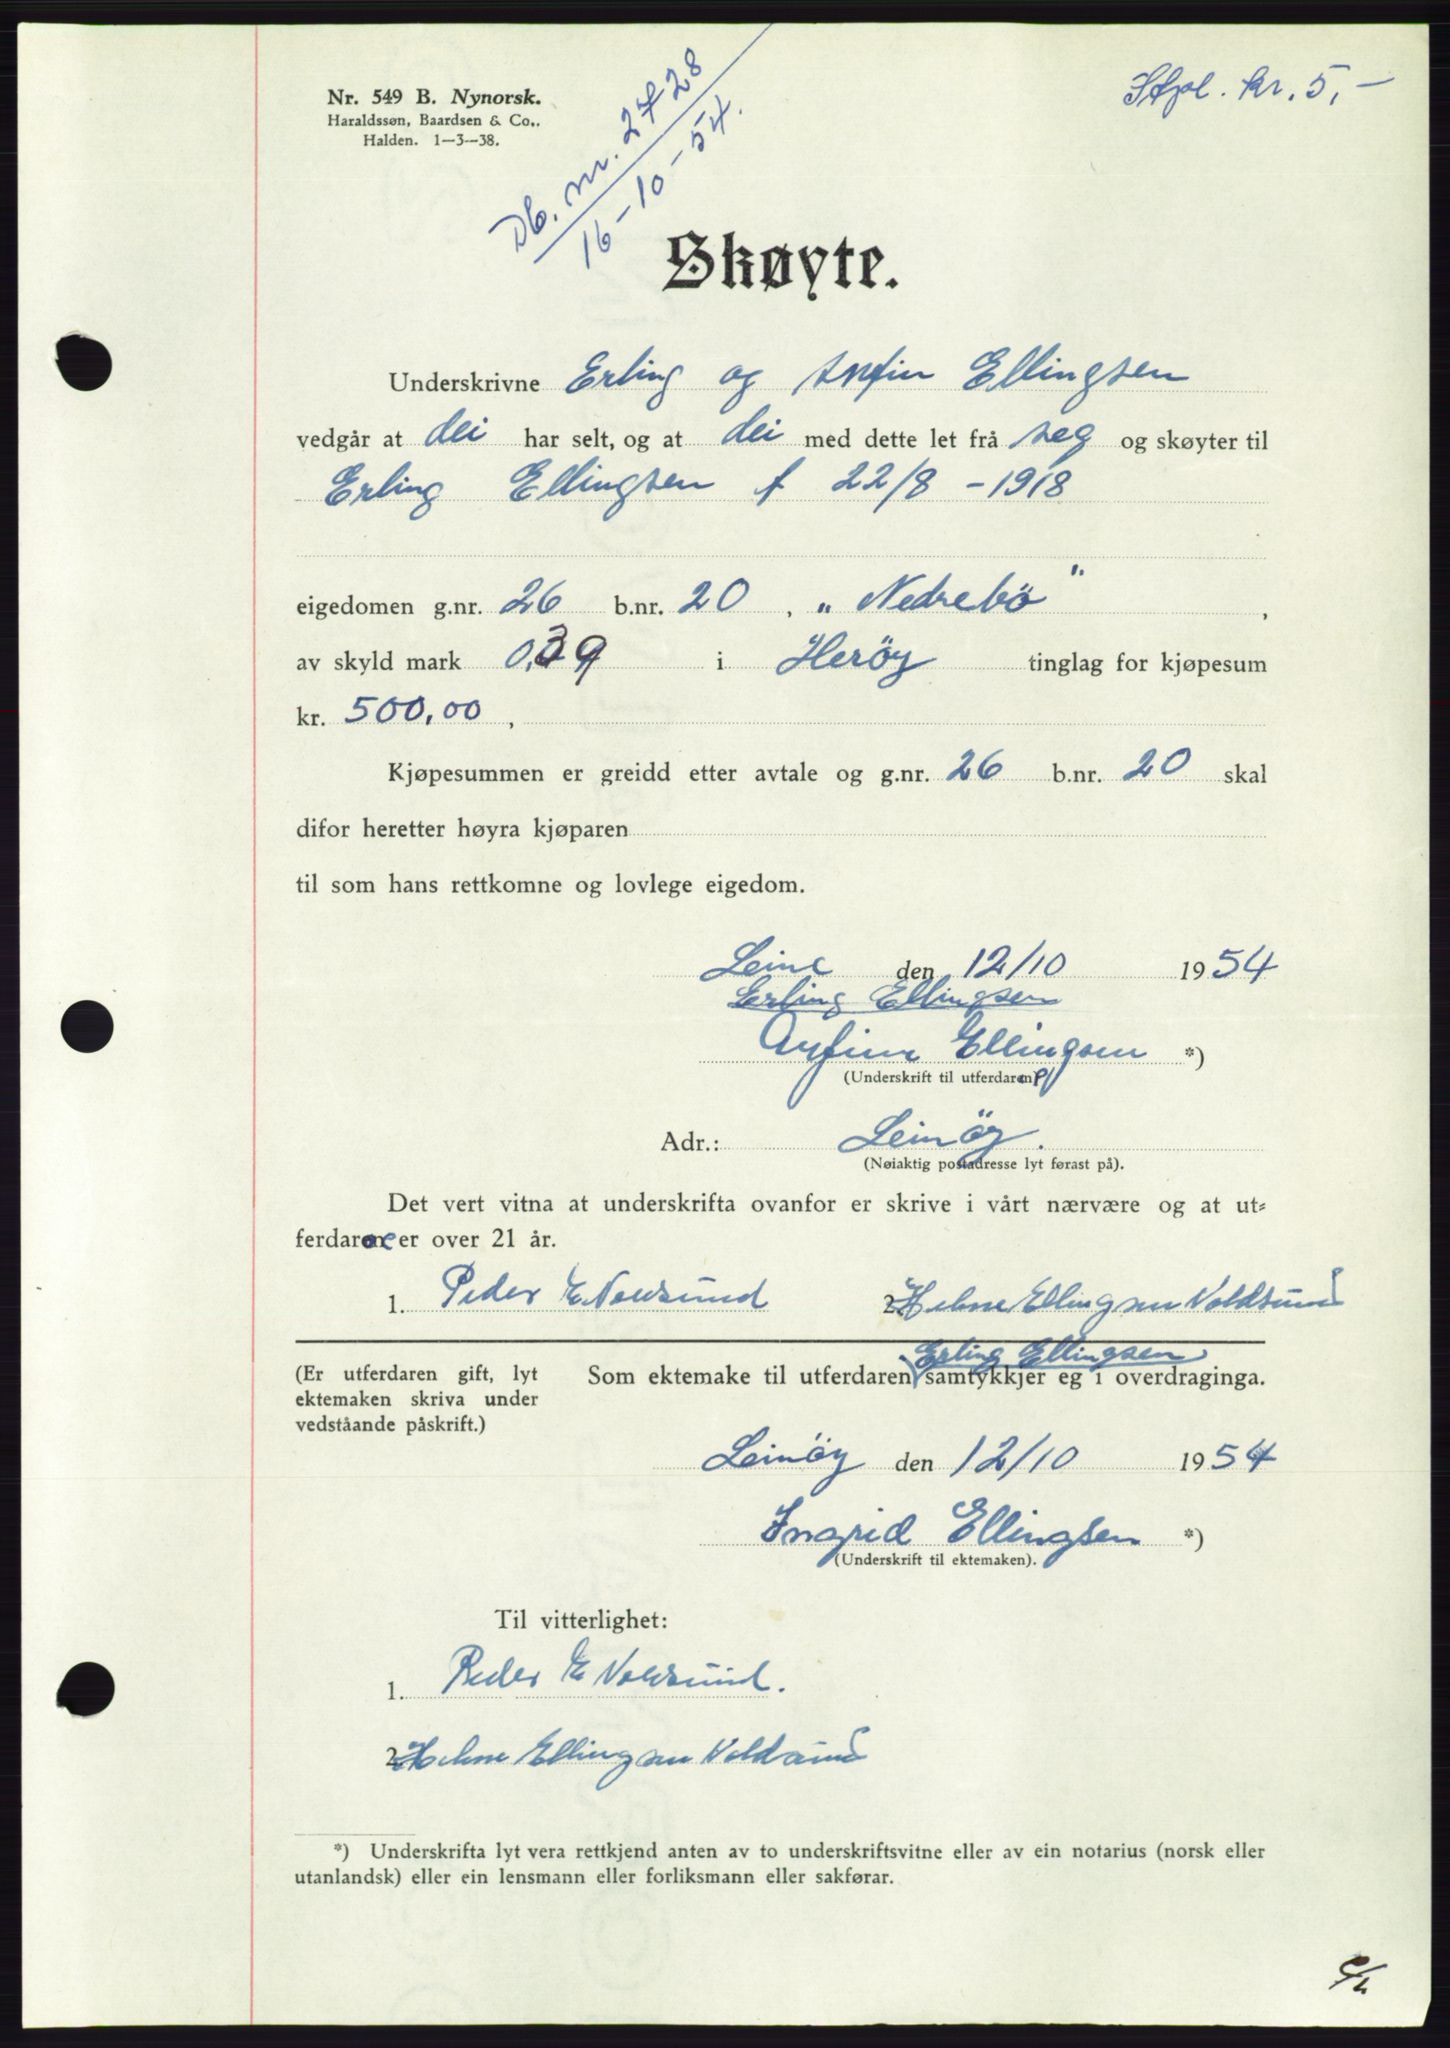 Nr. 549 B. Nynorsk.
Haraldssøn, Baardsen & Co..
Halden. 1—3—38.
Db. nr. 2728
16-10-54.
Stpl. kr. 5,-
Skøyte.
Underskrivne Erling og Arnfin Ellingsen
vedgår at dei har selt, og at dei med dette let frå seg og skøyter til
Erling Ellingsen f 22/8 - 1918
eigedomen g.nr. 26 b.nr. 20 , „ Nedrebö " ,
av skyld mark 0,39 i Heröy tinglag for kjøpesum
kr. 500,00 ,
Kjøpesummen er greidd etter avtale og g.nr. 26 b.nr. 20 skal
difor heretter høyra kjøparen
til som hans rettkomne og lovlege eigedom.
Leine den 12/10 1954
Erling Ellingsen
Ellingsen *)
(Underskrift til utferdaren)
Adr.: Leinöy.
(Nøiaktig postadresse lyt førast på).
Det vert vitna at underskrifta ovanfor er skrive i vårt nærvære og at ut=
ferdarane er over 21 år.
1. Peder E Voldsund 2. Helene Ellingsen Voldsund
(Er utferdaren gift, lyt
ektemaken skriva under
vedståande påskrift.)
Erling Ellingsen
Som ektemake til utferdaren samtykkjer eg i overdraginga.
Leinöy den 12/10 1954
Ingrid Ellingsen *)
(Underskrift til ektemaken).
Til vitterlighet:
1. Peder E Voldsund.
2. Helene Ellingsen Voldsund
*) Underskrifta lyt vera rettkjend anten av to underskriftsvitne eller av ein notarius (norsk eller
utanlandsk) eller ein lensmann eller forliksmann eller sakførar.